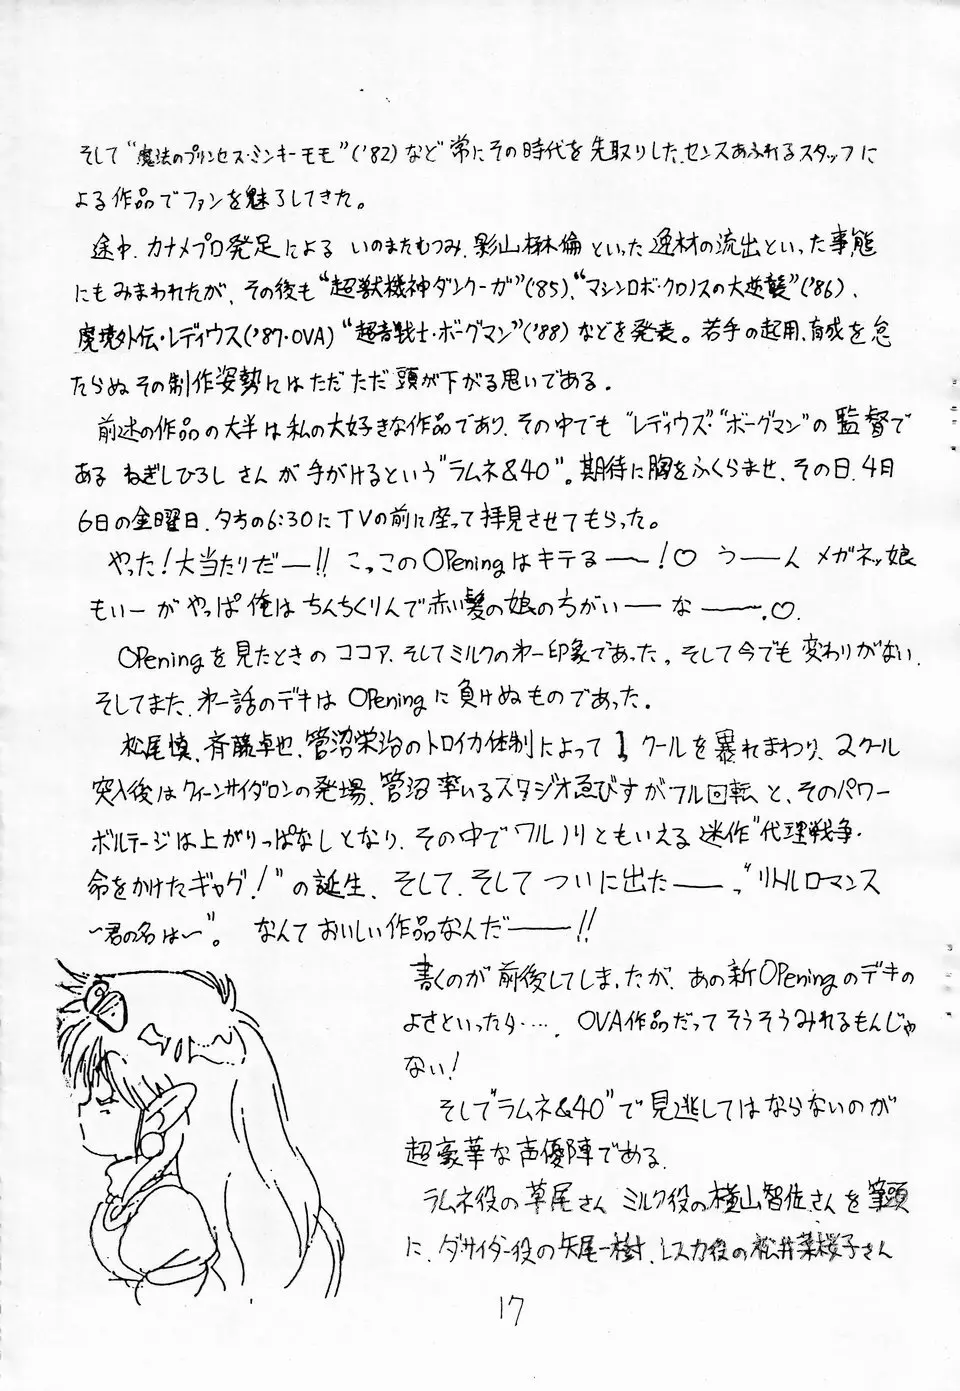 そして“魔法のプリンセス・ミンキーモモ”('82)など常にその時代を先取りした、センスあふれるスタッフに
よる作品でファンを魅了してきた。
途中、カナメプロ発足による いのまたむつみ、影山楙倫といった逸材の流出といった事態
にもみまわれたが、その後も“超獣機神ダンクーガ”('85)、“マシンロボ・クロノスの大逆襲”('86)、
魔境外伝・レディウス('87・OVA)“超音戦士・ボーグマン”('88)などを発表。若手の起用、育成を怠
たらぬその制作姿勢にはただただ頭が下がる思いである。
前述の作品の大半は私の大好きな作品であり、その中でも“レディウス”“ボーグマン”の監督で
ある ねぎしひろし さんが手がけるという“ラムネ&40”。期待に胸をふくらませ、その日、4月
6日の金曜日、夕方の6:30にTVの前に座って拝見させてもらった。
やった!大当たりだ――!! こっこのOPeningはキテる――〜!♡ う――ん メガネッ娘
もいーが やっぱ俺はちんちくりんで赤い髪の娘の方がい――な――〜.♡.
OPeningを見たときの ココア、そしてミルクの第一印象であった。そして今でも変わりがない.
そしてまた、第一話のデキは OPeningに負けぬものであった。
松尾慎、斉藤卓也、菅沼栄治のトロイカ体制によって1クールを暴れまわり、2クール
突入後はクイーンサイダロンの登場、菅沼率いるスタジオゑびすがフル回転と、そのパワー
ボルテージは上がりっぱなしとなり、その中でワルノリともいえる迷作“代理戦争・
命をかけたギャグ!”の誕生、そして、そして ついに出た――っ“リトルロマンス
〜君の名は〜”。 なんて おいしい作品なんだ――!!
書くのが前後してしまったが、あの新OPeningのデキの
よさといったら‥‥. OVA作品だってそうそうみれるもんじゃ
ない!
そして“ラムネ&40”で見逃してはならないのが
超豪華な声優陣である.
ラムネ役の草尾さん ミルク役の横山智佐さんを筆頭
に、ダサイダー役の矢尾一樹、レスカ役の松井菜桜子さん
17